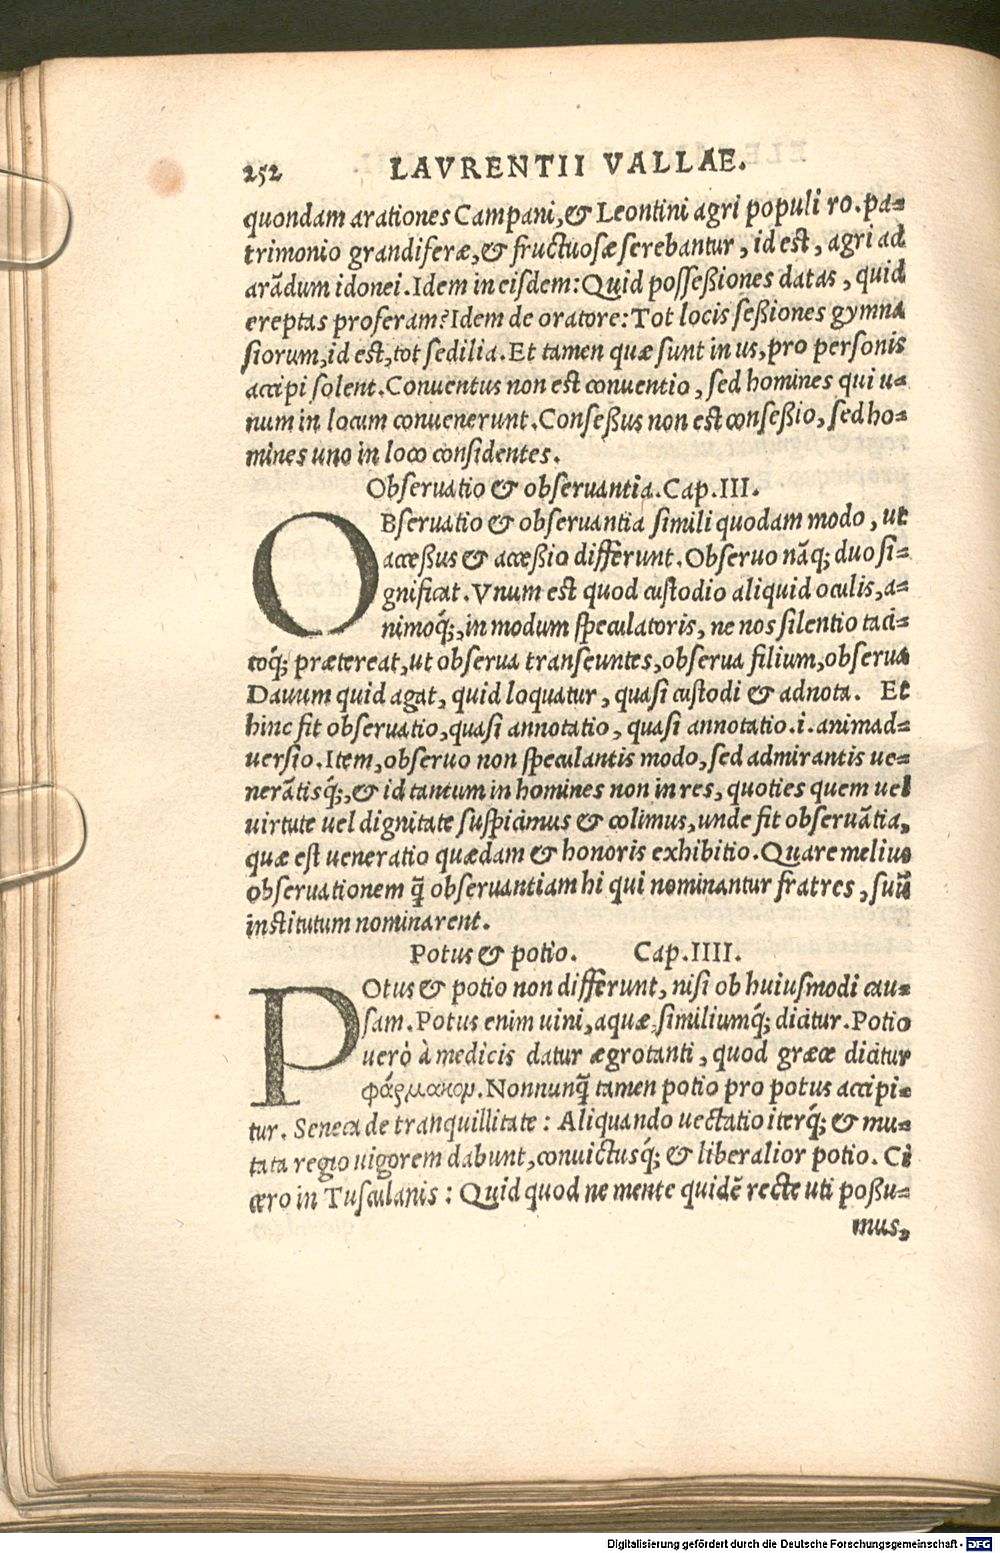 252 LAVRENTII VALLAE.
quondam arationes Campani, & Leontini agri populi ro. pa-
trimonio grandiferæ, & fructuosæ serebantur, id est, agri ad
arãdum idonei. Idem in eisdem: Quid possessiones datas, quid
ereptas proferam? Idem de oratore: Tot locis sessiones gymna
siorum, id est, tot sedilia. Et tamen quæ sunt in us, pro personis
accipi solent. Conuentus non est conuentio, sed homines qui u-
num in locum conuenerunt. Consessus non est consessio, sed ho-
mines uno in loco considentes.
Obseruatio & obseruantia. Cap. III.
OBseruatio & obseruantia simili quodam modo, ut
accessus & accessio differunt. Obseruo nãq; duo si-
gnificat. Vnum est quod custodio aliquid oculis, a-
nimoq́;, in modum speculatoris, ne nos silentio taci-
toq́; prætereat, ut obserua transeuntes, obserua filium, obserua
Dauum quid agat, quid loquatur, quasi custodi & adnota. Et
hinc fit obseruatio, quasi annotatio, quasi annotatio .i. animad-
uersio. Item, obseruo non speculantis modo, sed admirantis ue-
nerãtisq́;, & id tantum in homines non in res, quoties quem uel
uirtute uel dignitate suspicimus & colimus, unde fit obseruãtia,
quæ est ueneratio quædam & honoris exhibitio. Quare melius
obseruationem q̃ obseruantiam hi qui nominantur fratres, suũ
institutum nominarent.
Potus & potio. Cap. IIII.
POtus & potio non differunt, nisi ob huiusmodi cau-
sam. Potus enim uini, aquæ, similiumq́; dicitur. Potio
uerò à medicis datur ægrotanti, quod græce dicitur
φάρμακον. Nonnunq̃ tamen potio pro potus accipi-
tur. Seneca de tranquillitate: Aliquando uectatio iterq́; & mu-
tata regio uigorem dabunt, conuictusq́; & liberalior potio. Ci
cero in Tusculanis: Quid quod ne mente quidẽ recte uti possu-
mus,
Digitalisierung gefördert durch die Deutsche Forschungsgemeinschaft - DFG